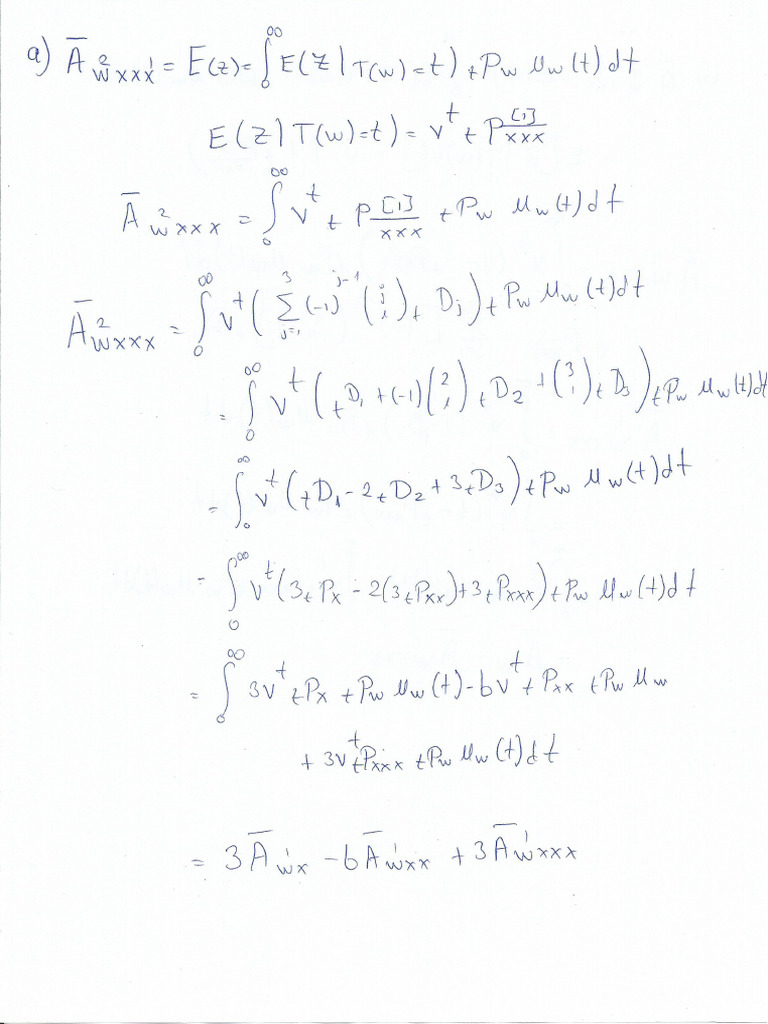 a) Ā_{w^2xxx^1} = E(z) = ∫_0^∞ E(Z | T(w)=t) _tP_w μ_w(t) dt
E(Z | T(w)=t) = v^t _tP_{xxx}^{[1]}
Ā_{w^2xxx} = ∫_0^∞ v^t _tP_{xxx}^{[1]} _tP_w μ_w(t) dt
Ā_{w^2xxx} = ∫_0^∞ v^t ( Σ_{j=1}^3 (-1)^{j-1} (j 1) _tD_j ) _tP_w μ_w(t) dt
= ∫_0^∞ v^t ( _tD_1 + (-1)(2 1) _tD_2 + (3 1) _tD_3 ) _tP_w μ_w(t) dt
= ∫_0^∞ v^t ( _tD_1 - 2 _tD_2 + 3 _tD_3 ) _tP_w μ_w(t) dt
= ∫_0^∞ v^t (3 _tP_x - 2(3 _tP_{xx}) + 3 _tP_{xxx}) _tP_w μ_w(t) dt
= ∫_0^∞ 3v^t _tP_x _tP_w μ_w(t) - 6v^t _tP_{xx} _tP_w μ_w
+ 3v^t _tP_{xxx} _tP_w μ_w(t) dt
= 3Ā_{w^1x} - 6Ā_{w^1xx} + 3Ā_{w^1xxx}